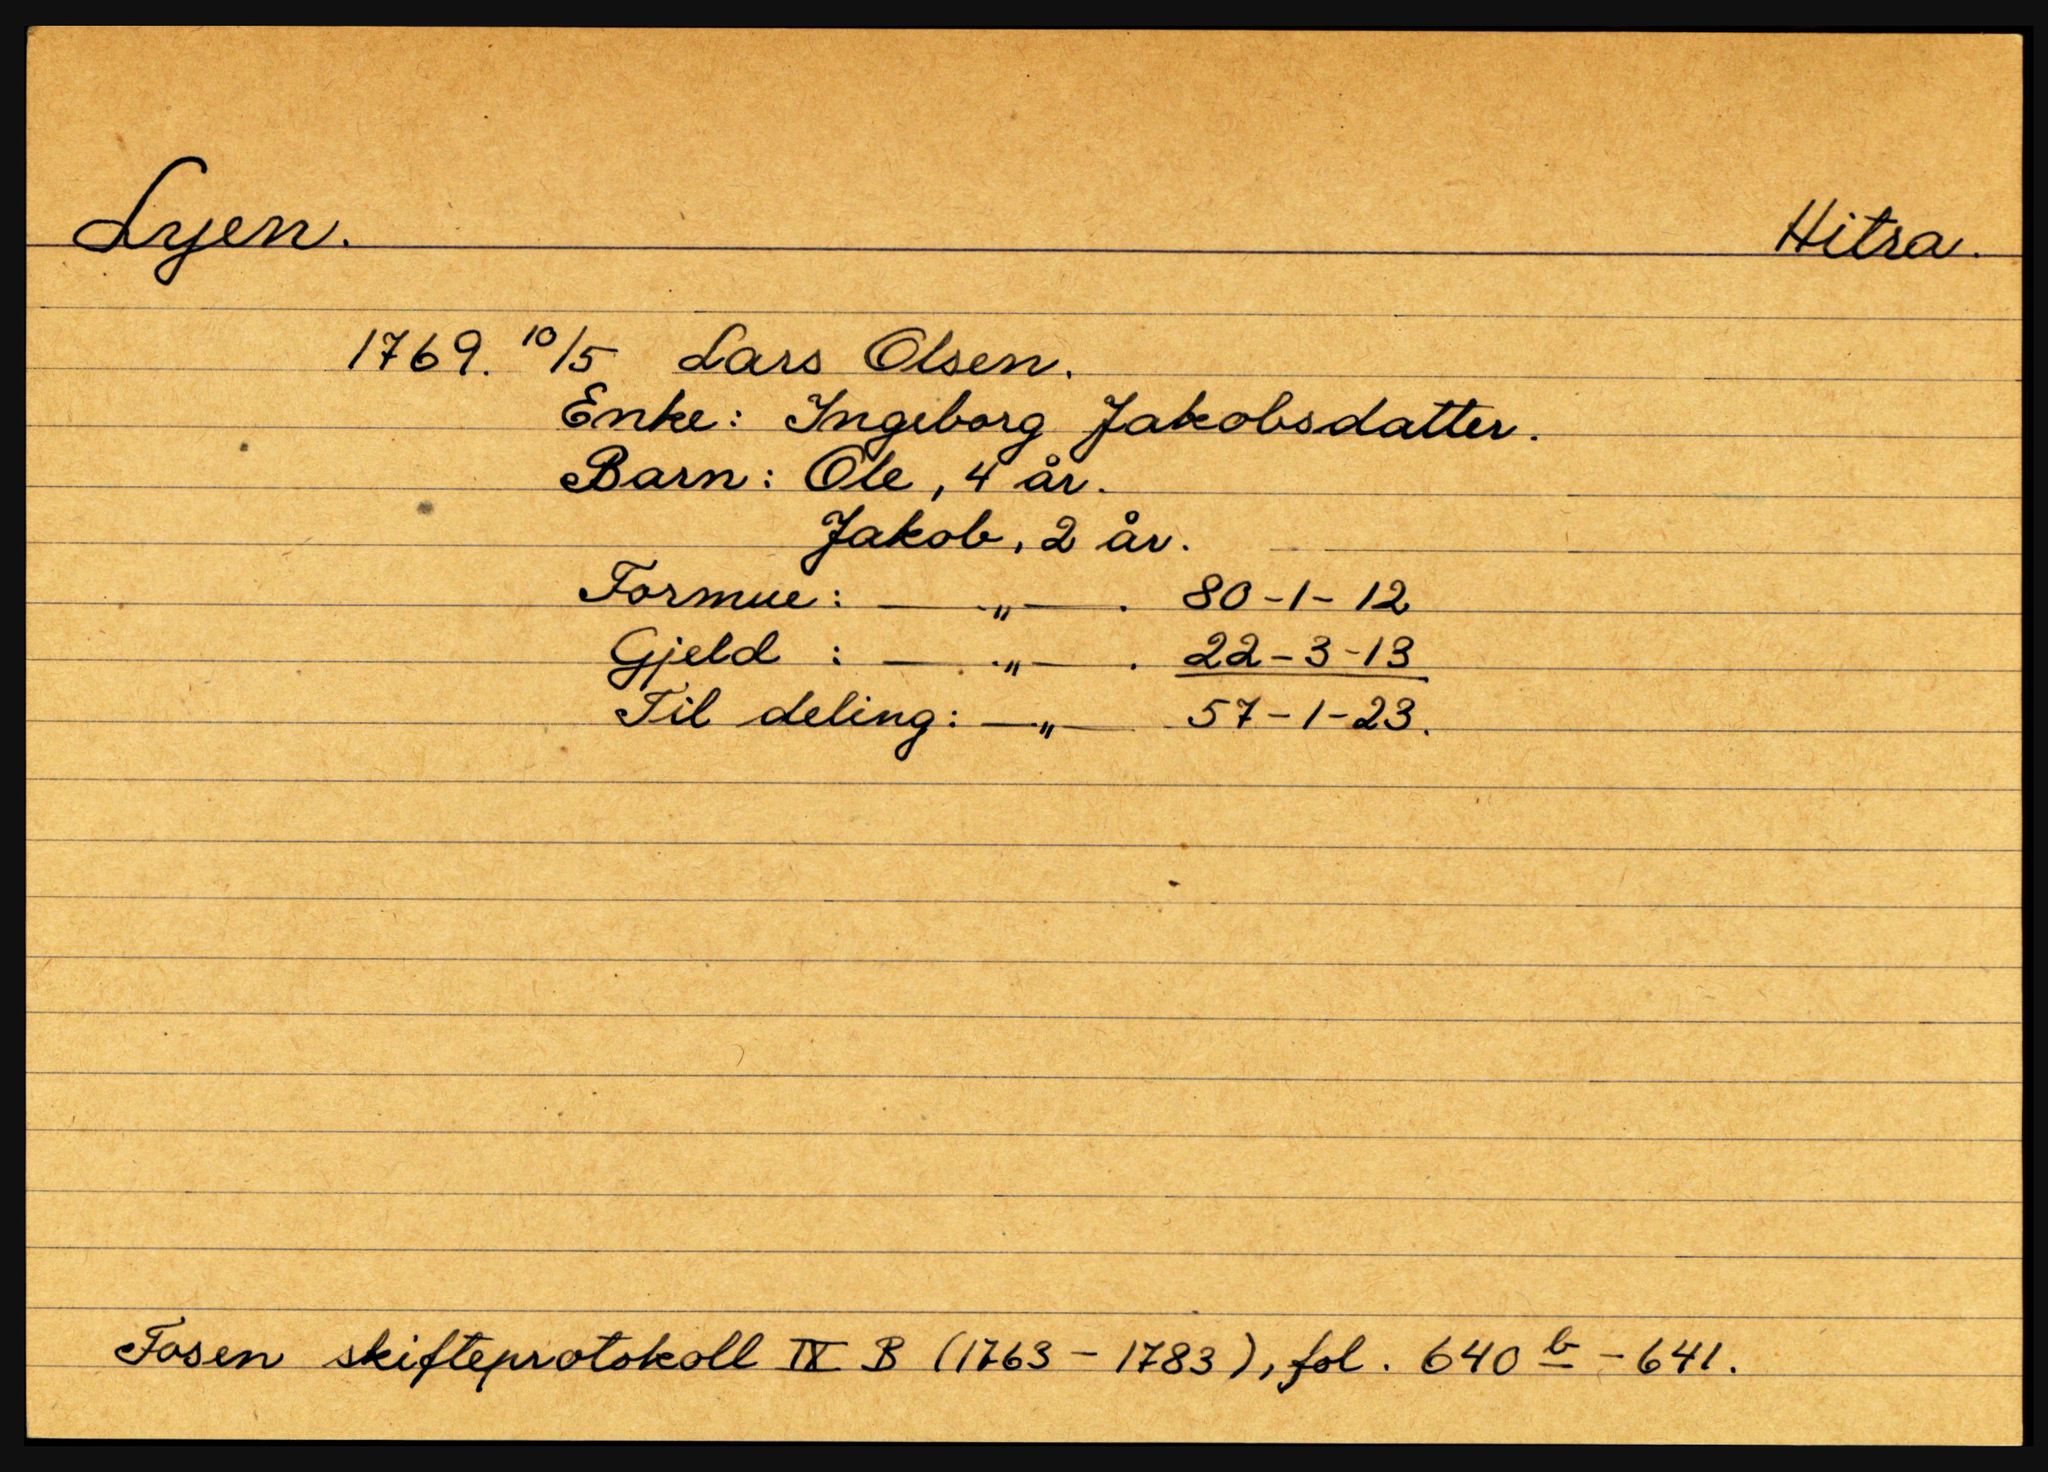 Lyen. Hitra.
1769. 10/5 Lars Olsen.
Enke: Ingeborg Jakobsdatter.
Barn: Ole, 4 år.
Jakob, 2 år.
Formue: — „ — . 80-1-12
Gjeld : — „ — . 22-3-13
Til deling: — „ — 57-1-23.
Fosen skifteprotokoll IX B (1763-1783), fol. 640 b - 641.